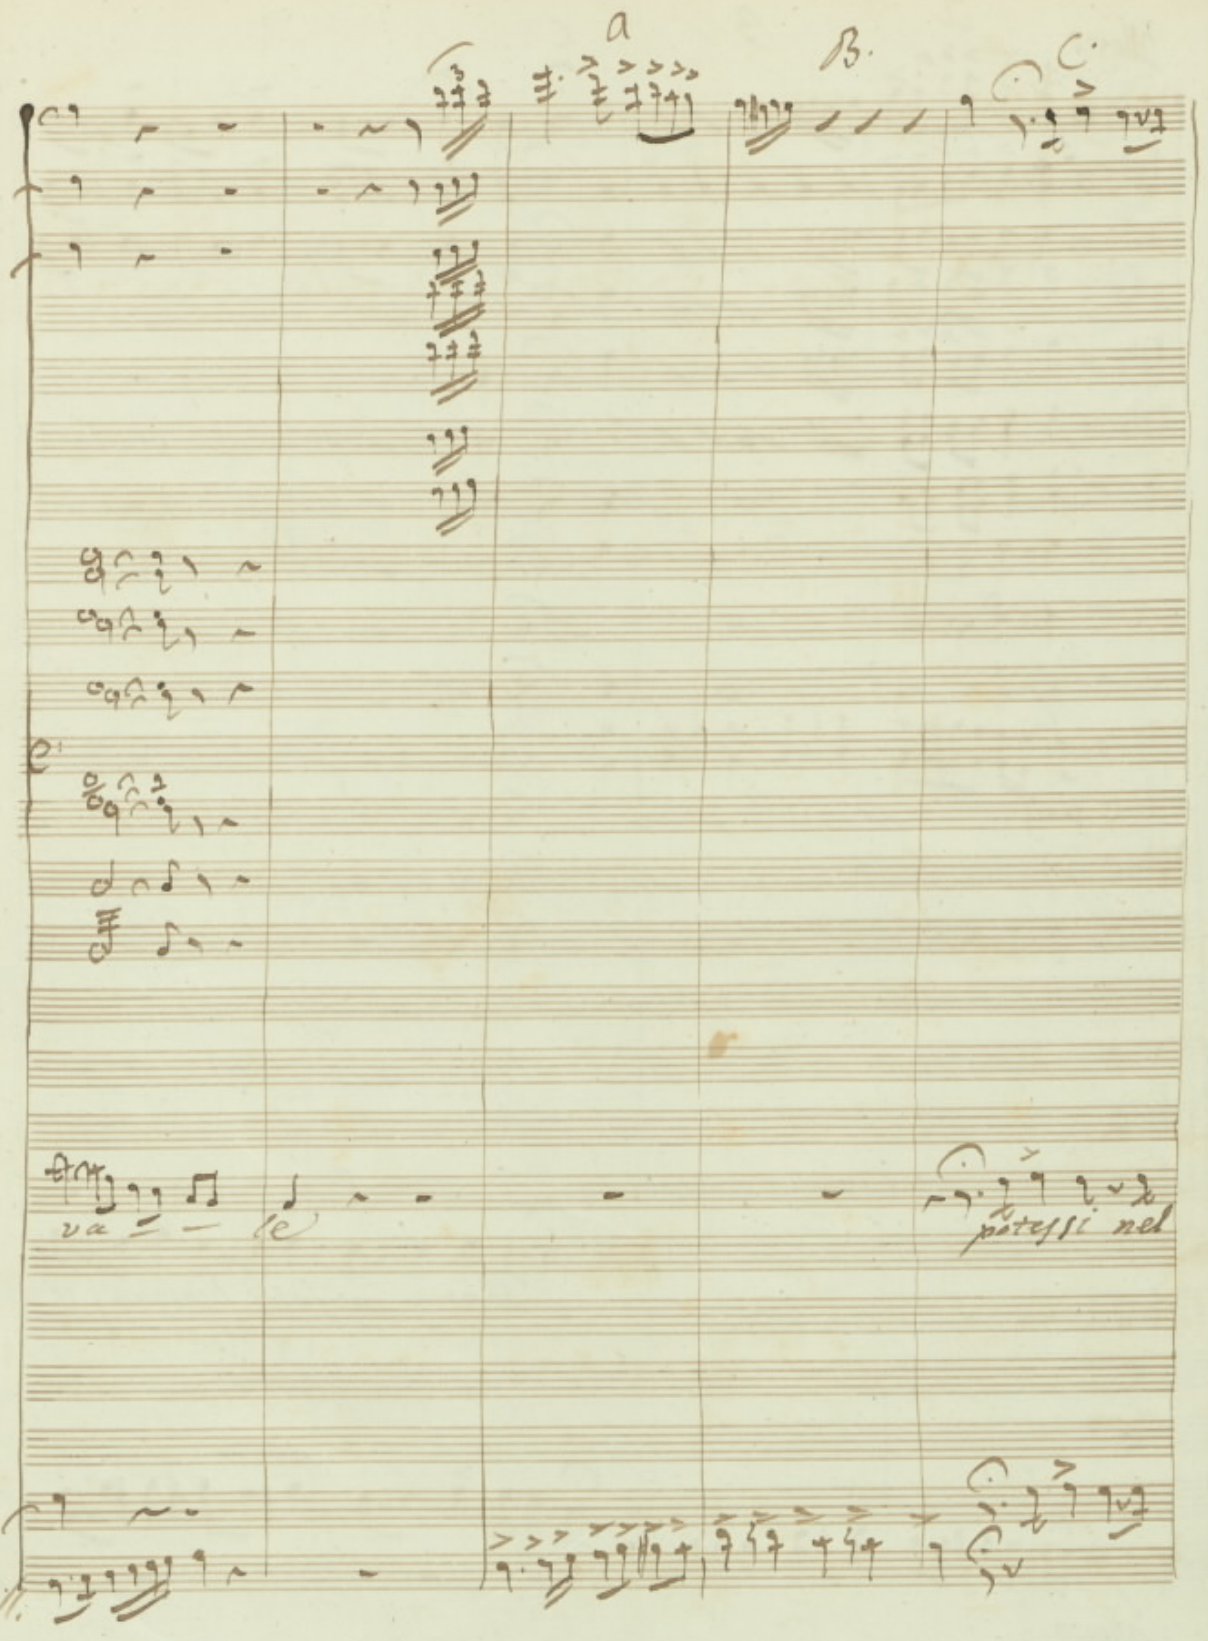 a B. C.
3
va - - le
potessi nel